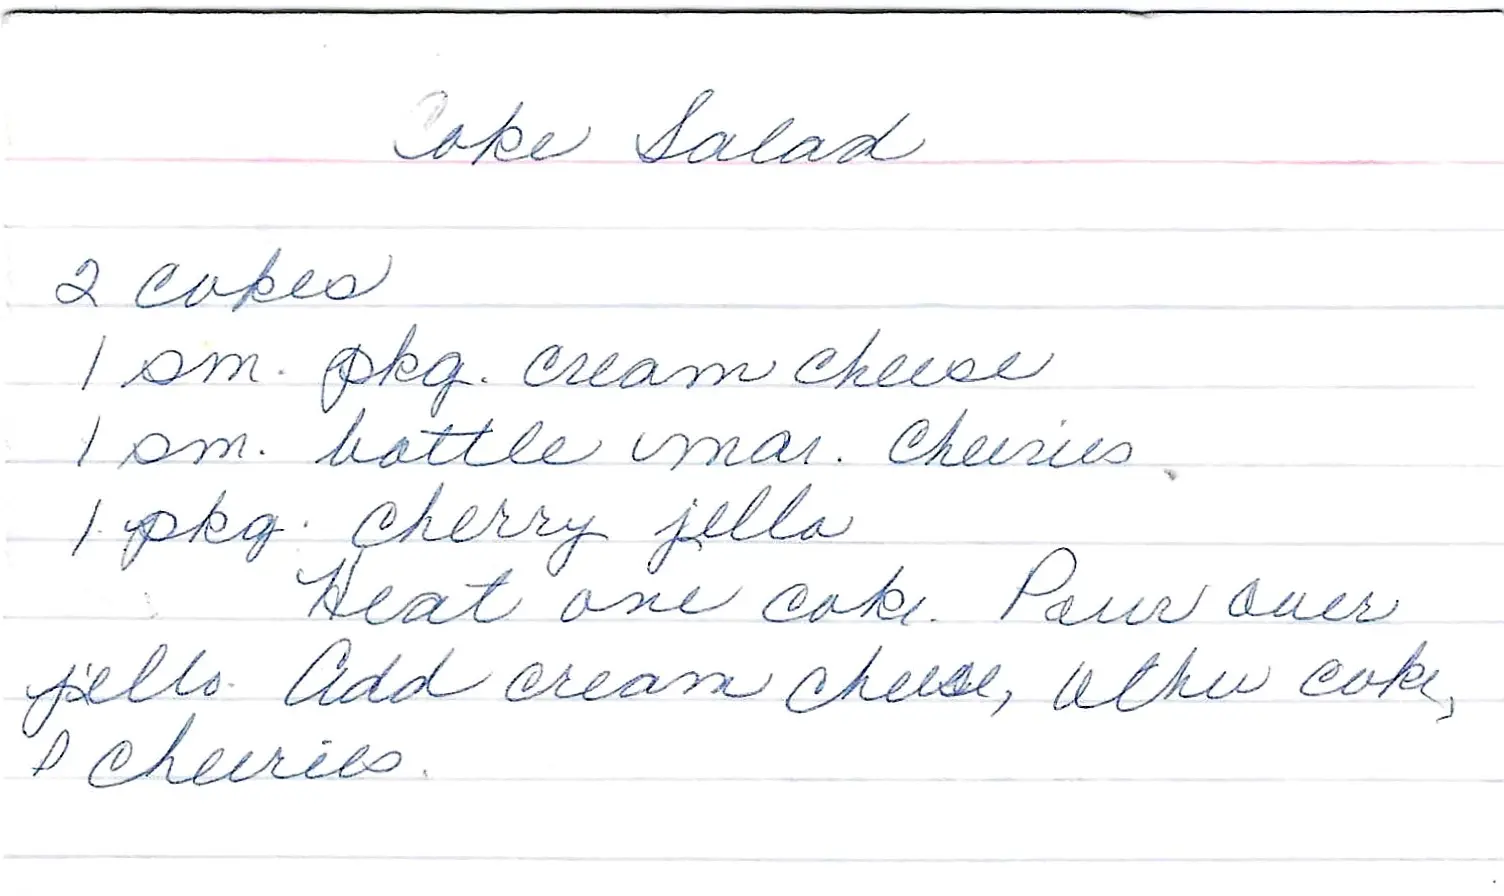 Coke Salad
2 cokes
1 sm. pkg. cream cheese
1 sm. bottle mar. cherries
1 pkg. cherry jello
Heat one coke. Pour over
jello. Add cream cheese, other coke,
& cherries.